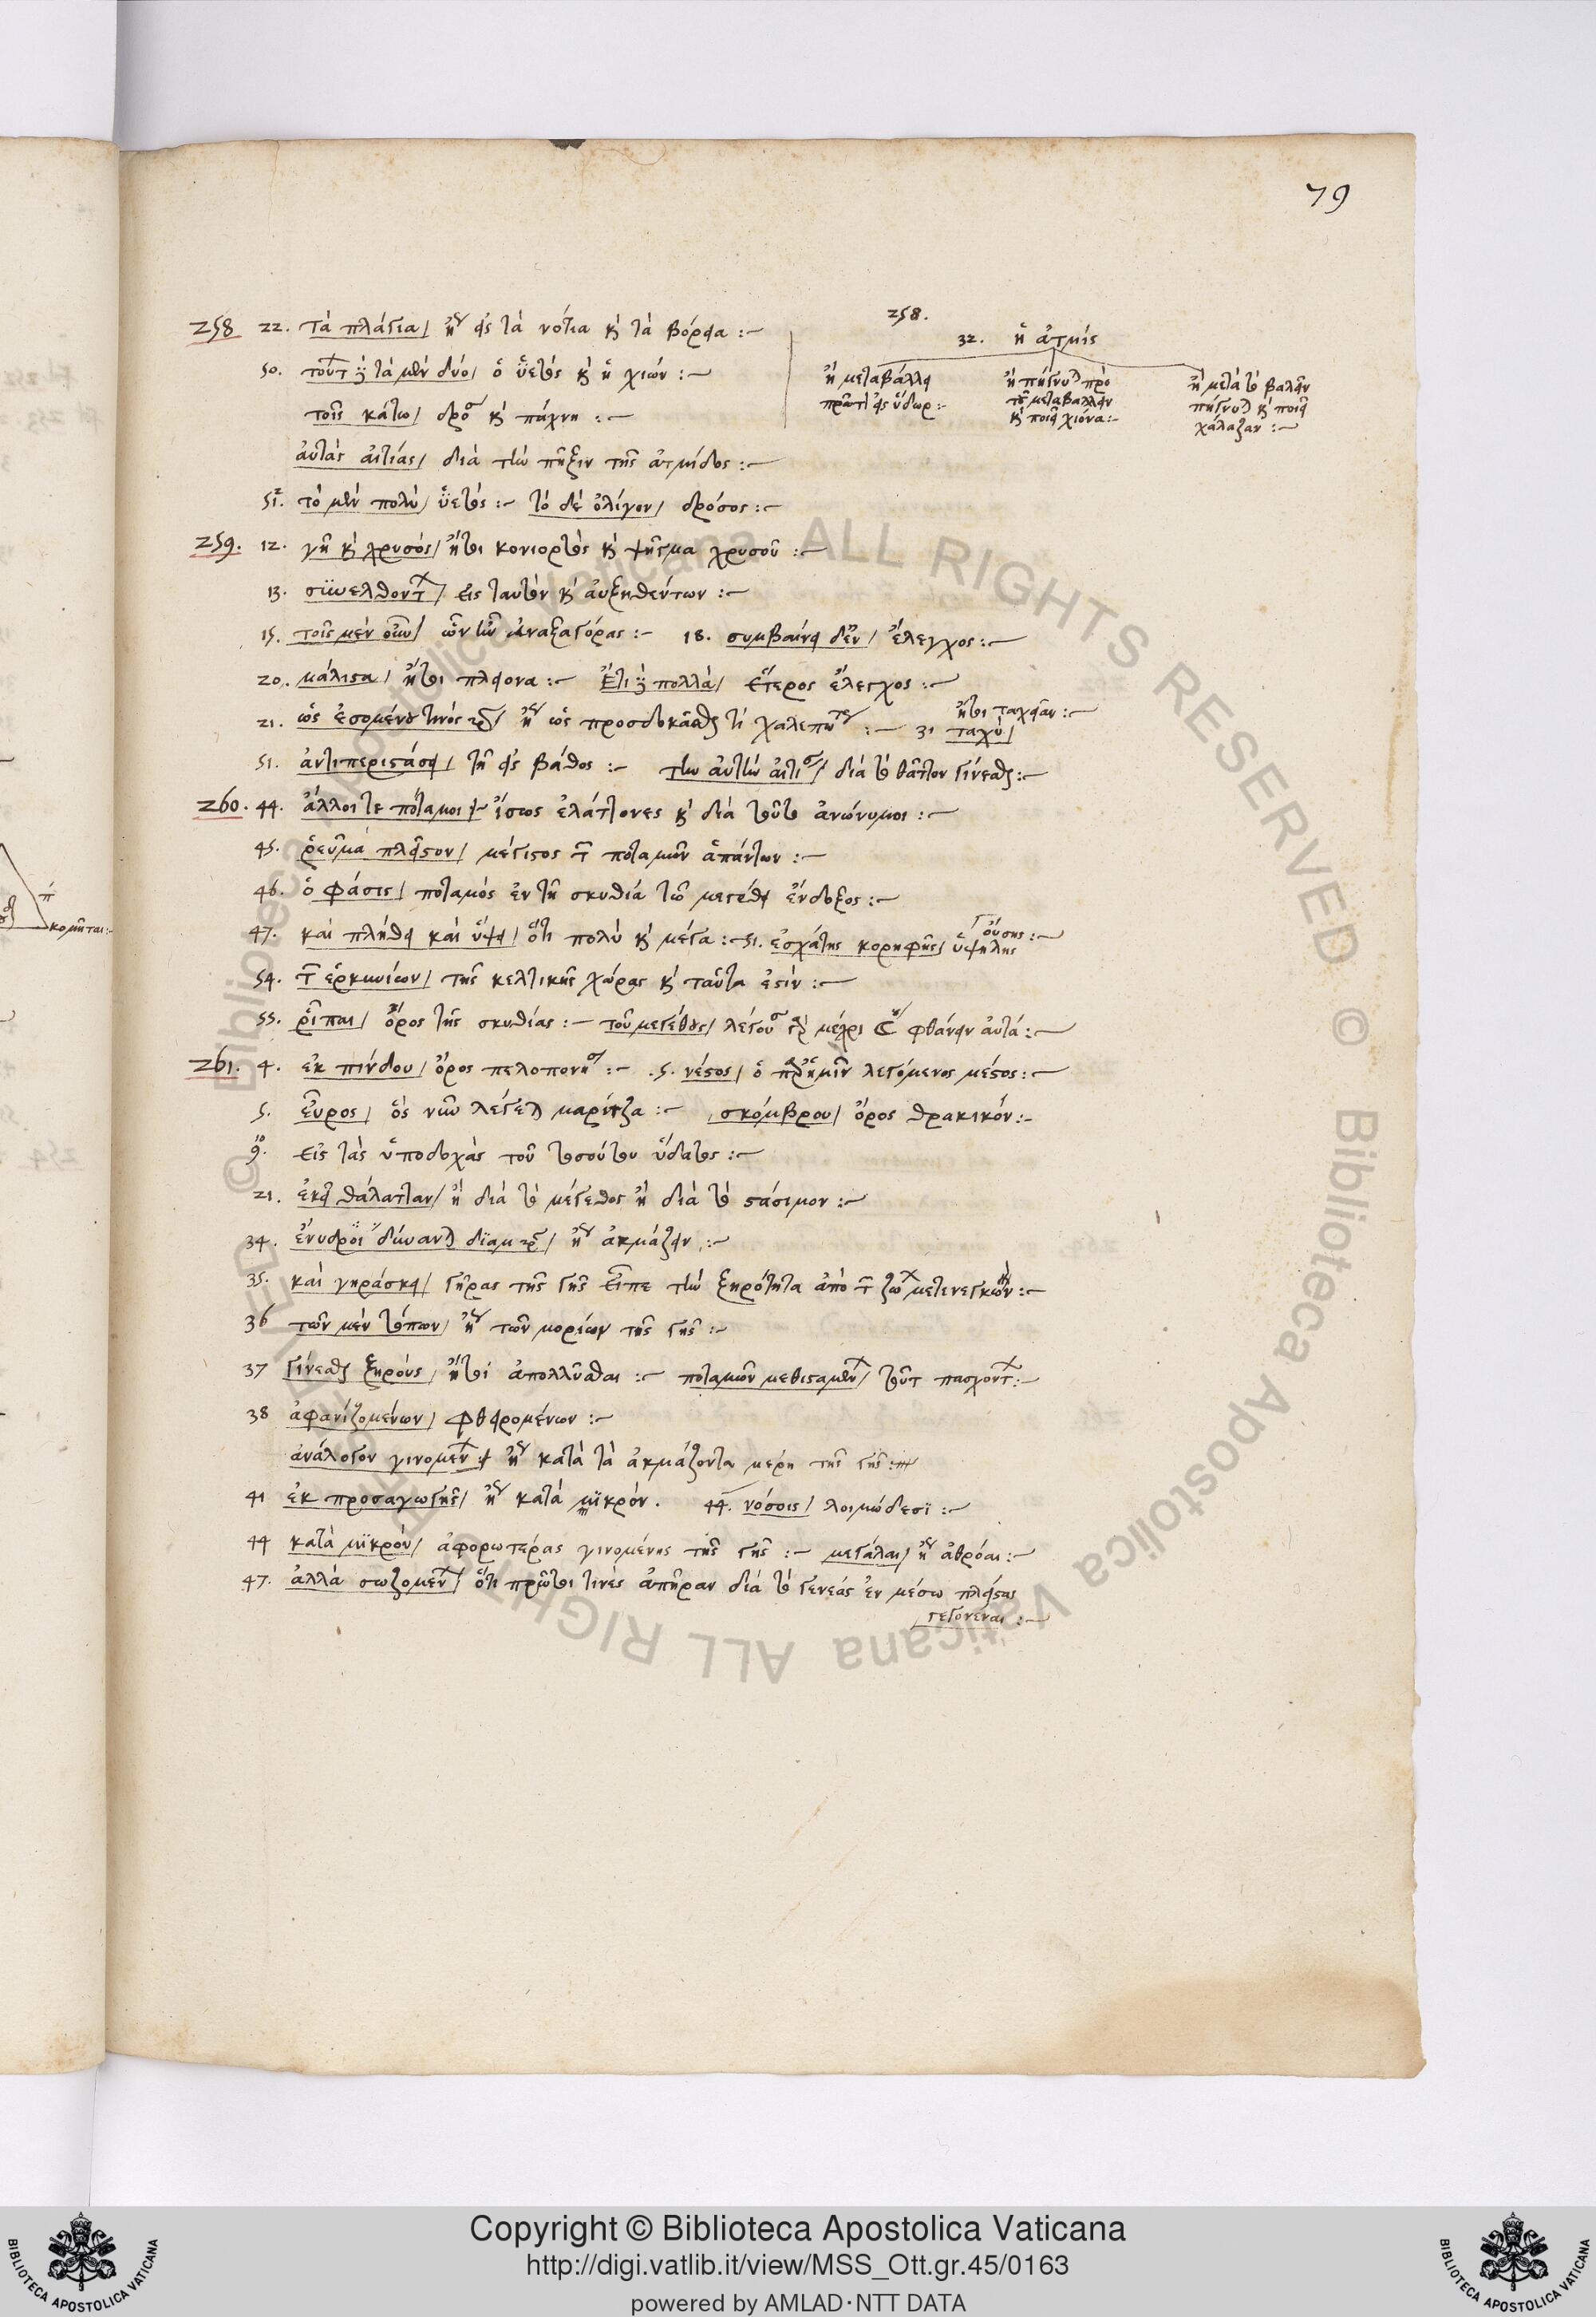 79
258 22. τὰ πλάγια / ἢ εἰς τὰ νότια κὶ τὰ βόρεια :~
50. τὰ μὲν δύο / ὁ ὑετὸς κὶ ἡ χιών :~
τοῖς κάτω / κὶ πάχνη :~
αὐτὰς αἰτίας / διὰ τὴν πῆξιν τῆς ἀτμίδος :~
51. τὸ μὲν πολὺ / ὑετός :~ τὸ δὲ ὀλίγον / δρόσος :~
258.
32. ἡ ἀτμὶς
ἢ μεταβάλλει
εἰς ὕδωρ :~
ἢ πήγνυται πρὸ
τοῦ μεταβάλλειν
κὶ ποιεῖ χιόνα :~
ἢ μετὰ τὸ βαλεῖν
πήγνυται κὶ ποιεῖ
χάλαζαν :~
259. 12. γῆ κὶ χρυσός / ἤτοι κονιορτὸς κὶ ψῆγμα χρυσοῦ :~
13. συνελθόντων / εἰς ταυτὸν κὶ αὐξηθέντων :~
15. τοῖς μὲν οὖν / ἀναξαγόρας :~ 18. συμβαίνει / ἔλεγχος :~
20. μάλιστα / ἤτοι πλείονα :~ πολλὰ / ἕτερος ἔλεγχος :~
21. ὡς ἐσομένου τινὸς / ὡς προσδοκᾶσθαι τί :~ 31 ταχὺ /
ἤτοι ταχεῖαν :~
51. ἀντιπεριστάσει / τῇ εἰς βάθος :~ τὴν αὐτὴν / διὰ τὸ θᾶττον γίνεσθαι :~
260. 44. ἄλλοι τε ποταμοὶ ἴσως ἐλάττονες κὶ διὰ τοῦτο ἀνώνυμοι :~
45. ῥεῦμα πλεῖστον / μέγιστος τῶν ποταμῶν ἁπάντων :~
46. ὁ φάσις / ποταμὸς ἐν τῇ σκυθία τῷ μεγέθει ἔνδοξος :~
47. καὶ πλήθει καὶ ὕψει / ὅτι πολὺ κὶ μέγα :~ 51. ἐσχάτης κορυφῆς / ὑψηλῆς
οὔσης :~
54. τῶν ἑρκυνίων / τῆς κελτικῆς χώρας κὶ ταῦτα ἐστίν :~
55. ῥῖπαι / ὄρος τῆς σκυθίας :~ τοῦ μεγέθους / μέχρι φθάνειν αὐτά :~
261. 4. ἐκ πίνδου / ὄρος :~ 5. νέστος / ὁ λεγόμενος μέστος :~
5. εὖρος / ὃς νῦν λέγεται μαρίτζα :~ σκόμβρου / ὄρος θρακικόν :~
9. εἰς τὰς ὑποδοχὰς τοῦ τοσούτου ὕδατος :~
21. θάλατταν / ἢ διὰ τὸ μέγεθος ἢ διὰ τὸ στάσιμον :~
34. ἔνυδροι δύνανται / ἀκμάζειν :~
35. καὶ γηράσκει / γῆρας τῆς γῆς εἶπε τὴν ξηρότητα ἀπὸ τῶν ζώων μετενεγκών :~
36 τῶν μὲν τόπων / τῶν μορίων τῆς γῆς :~
37 γίνεσθαι ξηροὺς / ἤτοι ἀπόλλυσθαι :~ ποταμῶν μεθισταμένων /
38 ἀφανιζομένων / φθειρομένων :~
ἀνάλογον γινομένων κατὰ τὰ ἀκμάζοντα μέρη τῆς γῆς :~
41 ἐκ προσαγωγῆς / κατὰ μικρόν. 44. νόσοις / λοιμώδεσι :~
44 κατὰ μικρὸν / ἀφορωτέρας γινομένης τῆς γῆς :~ μεγάλαι / ἀθρόαι :~
47. ἀλλὰ σωζομένων / ὅτι πρῶτοι τινὲς ἀπῆραν διὰ τὸ γενεὰς ἐν μέσω πλείστας
γεγονέναι :~
κομῆται :~
© Biblioteca Apostolica Vaticana ALL RIGHTS RESERVED © Biblioteca Apostolica Vaticana ALL RIGHTS RESERVED
BIBLIOTECA APOSTOLICA VATICANA
Copyright © Biblioteca Apostolica Vaticana
http://digi.vatlib.it/view/MSS_Ott.gr.45/0163
powered by AMLAD·NTT DATA
BIBLIOTECA APOSTOLICA VATICANA